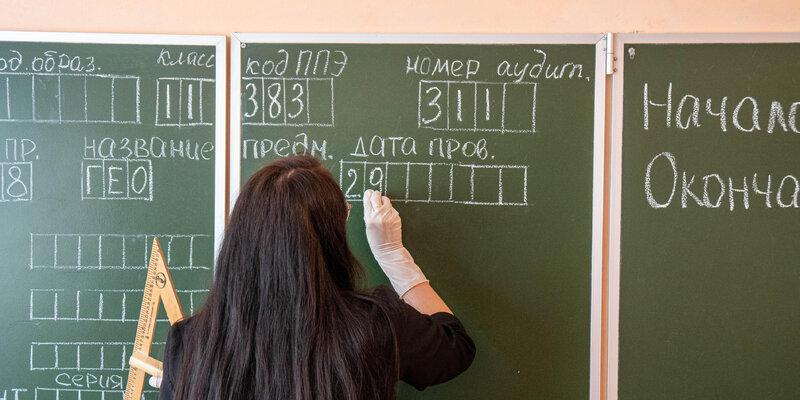 од.образ. класс
11
пр. название
8 ГЕО
серия
нт
код ППЭ номер аудит.
383 311
предм. дата пров.
29
Начало
Оконча